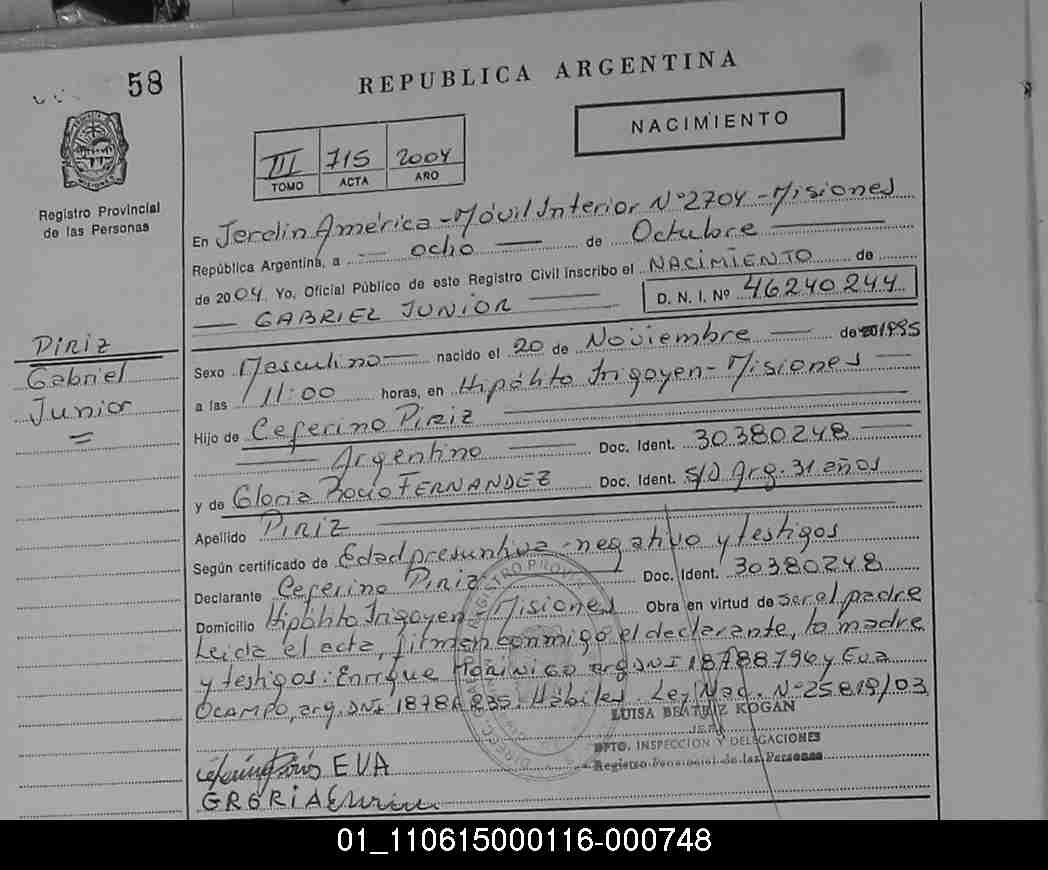 58
REPUBLICA ARGENTINA
NACIMIENTO
III 715 2004
TOMO ACTA AÑO
Registro Provincial
de las Personas
En Jardín América - Móvil Interior N° 2704 - Misiones
República Argentina, a ocho de Octubre
de 2004 Yo, Oficial Público de este Registro Civil inscribo el NACIMIENTO de
GABRIEL JUNIOR D. N. I. Nº 46240244
PIRIZ
Gabriel
Junior
Sexo Masculino nacido el 20 de Noviembre de 1995
a las 11:00 horas, en Hipólito Irigoyen - Misiones
Hijo de Ceferino PIRIZ
Argentino Doc. Ident. 30380248
y de Gloria Rocío FERNANDEZ Doc. Ident. S/D Arg. 31 años
Apellido PIRIZ
Según certificado de Edad presuntiva - negativo y testigos
Declarante Ceferino Piriz Doc. Ident. 30380248
Domicilio Hipólito Irigoyen - Misiones Obra en virtud de ser el padre
Leída el acta, firman conmigo el declarante, la madre
y testigos: Enrique arg DNI 18788796 y Eva
OCAMPO, arg. DNI Hábiles Ley Nac. N° 25.819/03
LUISA BEATRIZ KOGAN
JEFE
DPTO. INSPECCION Y DELEGACIONES
Registro Provincial de las Personas
EVA
01_110615000116-000748